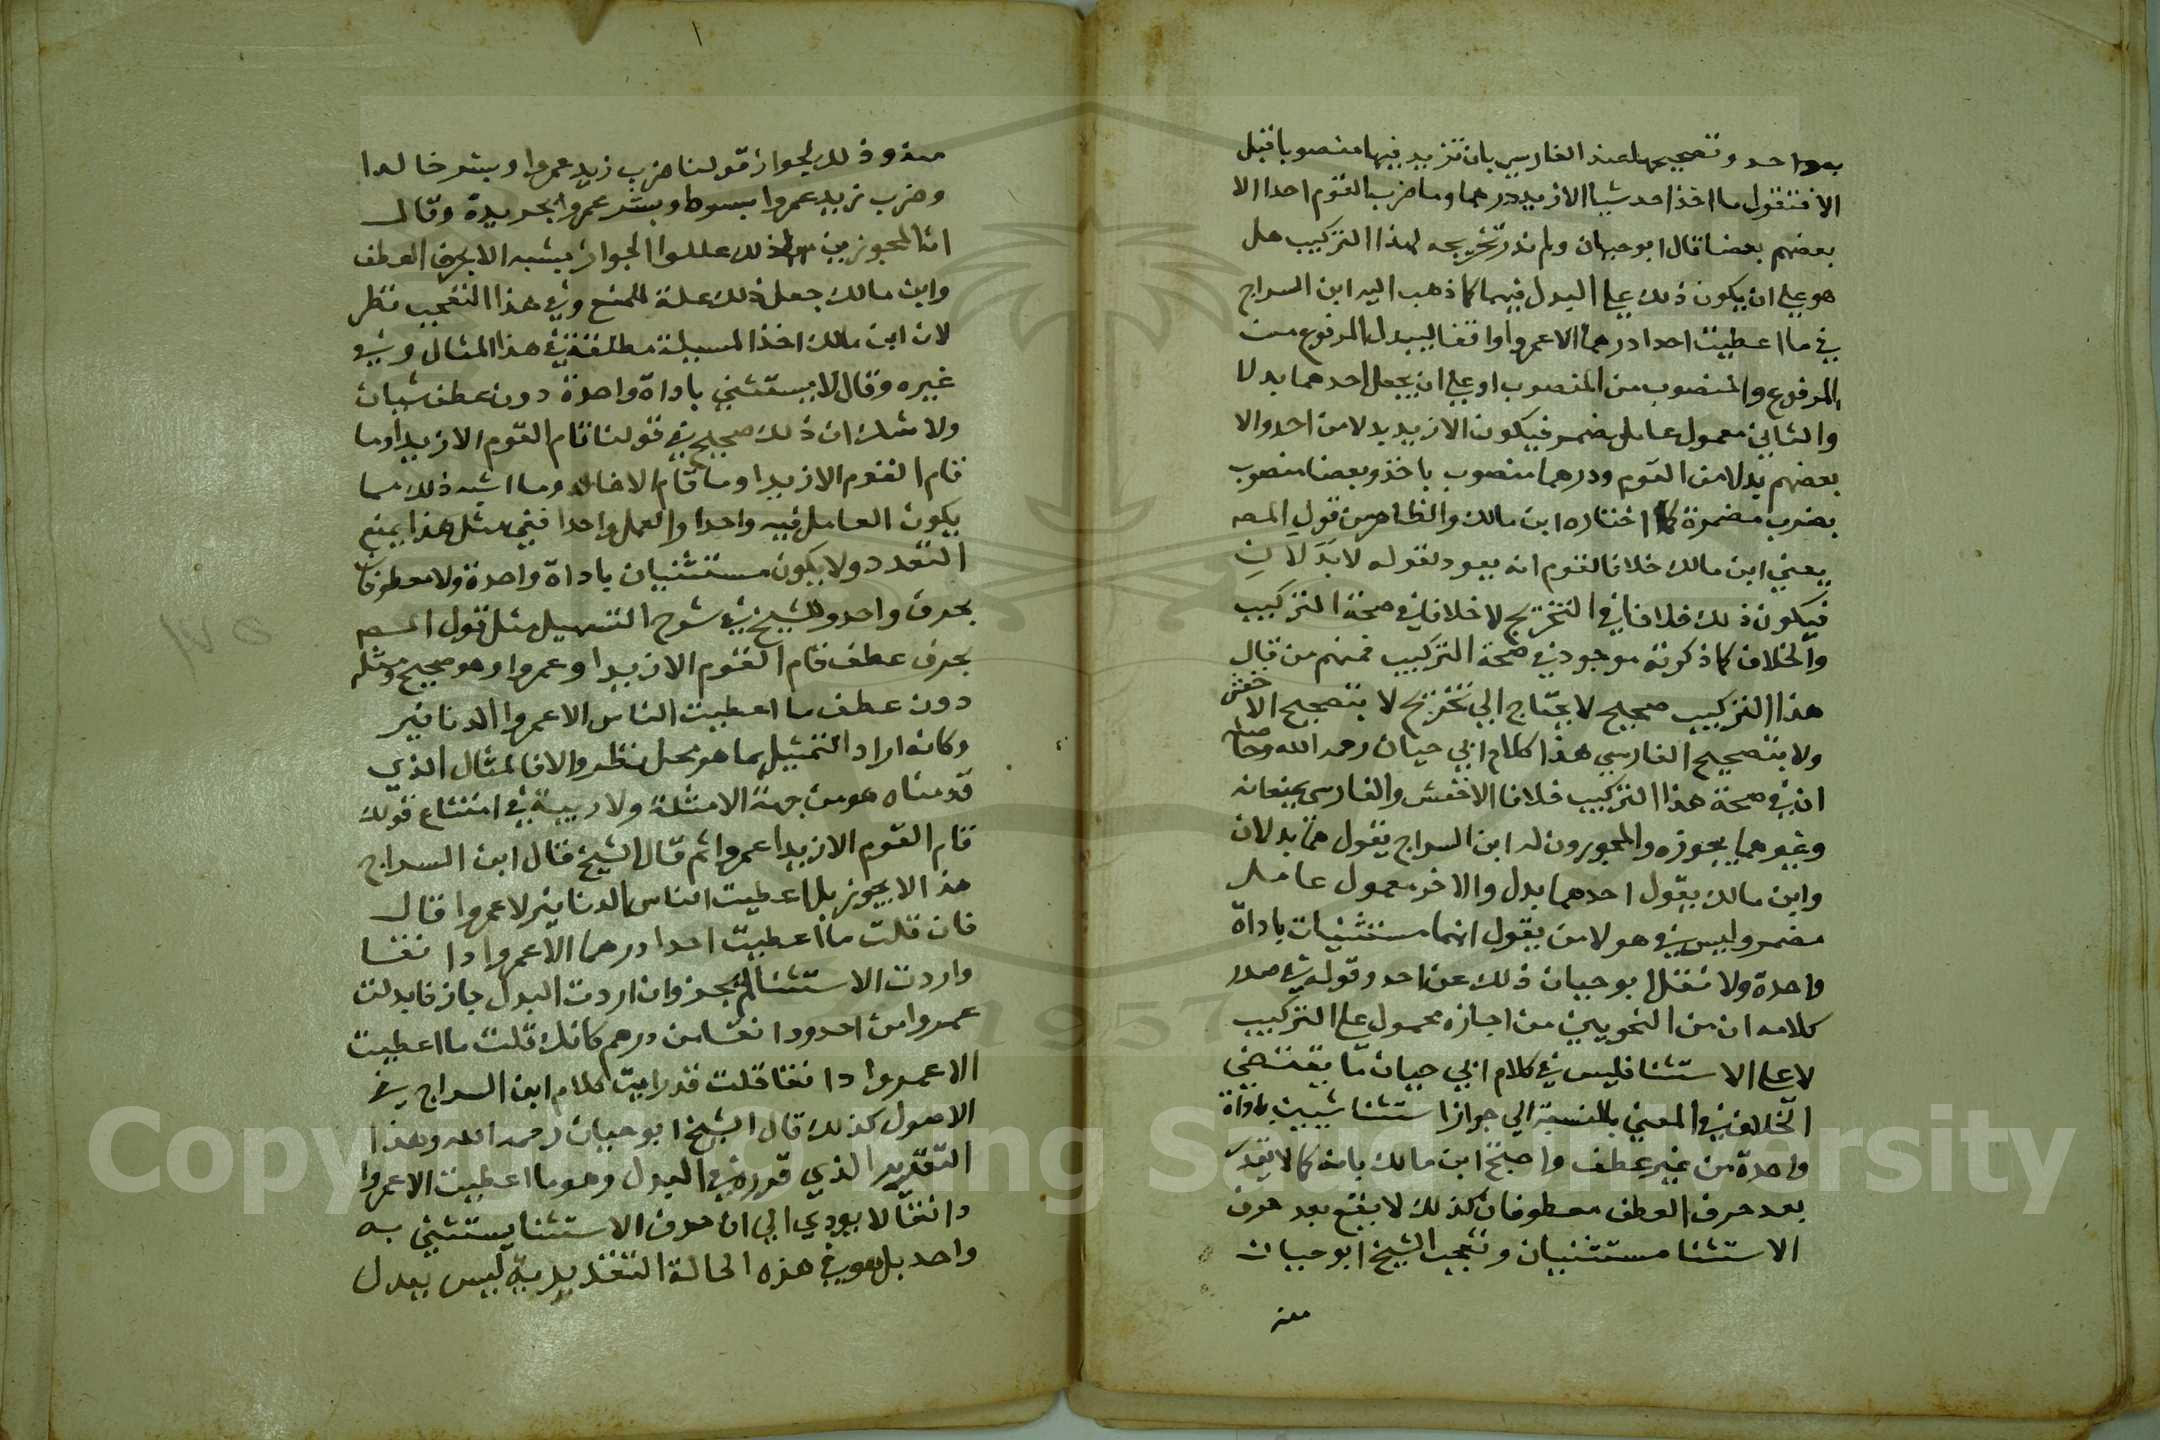 بعد احد وتصحيحها عند الفارسي بان تزيد فيها منصوبا قبل
الا فتقول ما اخذ احد شيا الا زيد درهما وما ضرب القوم احدا الا
بعضهم بعضا قال ابو حيان ولم ندر تخريجه لهذا التركيب هل
هو على ان يكون ذلك على البدل فيهما كما ذهب اليه ابن السراج
في ما اعطيت احدا درهما الا عمروا دانقا ليبدل المرفوع من
المرفوع والمنصوب من المنصوب او على ان يجعل احدهما بدلا
والثاني معمول عامل مضمر فيكون الا زيد بدلا من احد والا
بعضهم بدلا من القوم ودرهما منصوب باخذ وبعضا منصوب
بضرب مضمرة كما اختاره ابن مالك والظاهر من قول المص
يعني ابن مالك خلافا لقوم انه يعود لقوله لا بدلان
فيكون ذلك خلافا في التخريج لا خلافا في صحة التركيب
والخلاف كما ذكرته موجود في صحة التركيب فمنهم من قال
هذا التركيب صحيح لا يحتاج الي تخريج لا بتصحيح الاخفش
ولا بتصحيح الفارسي هذا كلام ابي حيان رحمه الله وحاصله
ان في صحة هذا التركيب خلافا الاخفش والفارسي يمنعانه
وغيرهما يجوزه والمجوزون له ابن السراج يقول هما بدلان
وابن مالك يقول احدهما بدل والاخر معمول عامل
مضمر وليس في هولا من يقول انهما مستثنيان باداة
واحدة ولا نقل ابو حيان ذلك عن احد وقوله في صدر
كلامه ان من النحويين من اجازه محمول على التركيب
لا على الاستثنا فليس في كلام ابي حيان ما يقتضي
الخلاف في المعني بالنسبة الي جواز استثنا شيين باداة
واحدة من غير عطف واحتج ابن مالك بانه كما لا يقدر
بعد حرف العطف معطوفان كذلك لا يقع بعد حرف
الاستثنا مستثنيان وتعجب الشيخ ابو حيان
منه
منه وذلك لجواز قولنا ضرب زيد عمروا وبشر خالدا
وضرب زيد عمروا بسوط وبشر عمروا بجريدة وقال
ان المجوزين لذلك عللوا الجواز بشبه الا بحرف العطف
وابن مالك جعل ذلك علة للمنع وفي هذا التعجب نظر
لان ابن مالك اخذ المسيلة مطلقة في هذا المثال وفي
غيره وقال لا يستثني باداة واحدة دون عطف شيان
ولا شك ان ذلك صحيح في قولنا قام القوم الا زيدا وما
قام القوم الا زيدا وما قام الا خالد وما اشبه ذلك مما
يكون العامل فيه واحدا والعمل واحدا ففي مثل هذا يمنع
التعدد ولا يكون مستثنيان باداة واحدة ولا معطوفان
بحرف واحد وللشيخ في شرح التسهيل مثل قول المص
بحرف عطف قام القوم الا زيدا وعمروا وهو صحيح ومثله
دون عطف ما اعطيت الناس الا عمروا الدنانير
وكانه اراد التمثيل بما هو محل نظر والا فالمثال الذي
قدمناه هو من جهة الامثلة ولا ريبة في امتناع قولك
قام القوم الا زيدا عمروا ثم قال الشيخ قال ابن السراج
هذا لا يجوز بل اعطيت الناس الدنانير لا عمروا قال
فان قلت ما اعطيت احدا درهما الا عمروا دانقا
واردت الاستثنا لم يجز وان اردت البدل جاز فابدلت
عمروا من احد ودانقا من درهم كانك قلت ما اعطيت
الا عمروا دانقا قلت قد رايت كلام ابن السراج في
الاصول كذلك قال الشيخ ابو حيان رحمه الله وهذا
التقدير الذي قرره في البدل وهو ما اعطيت الا عمروا
دانقا لا يودي الي ان حرف الاستثنا يستثني به
واحد بل هو في هذه الحالة التقديرية ليس ببدل
Copyright © King Saud University
1957